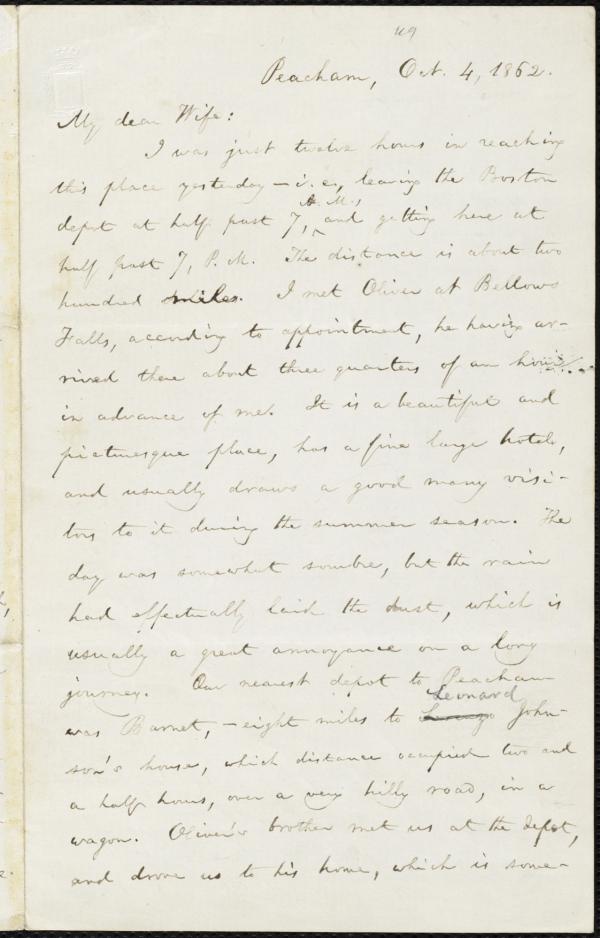 49
Peacham, Oct. 4, 1862.
My dear Wife:
I was just twelve hours in reaching
this place yesterday — i. e., leaving the Boston
A. M.,
depot at half past 7, and getting here at
half past 7, P. M. The distance is about two
hundred miles. I met Oliver at Bellows
Falls, according to appointment, he having ar-
rived there about three quarters of an hour
in advance of me. It is a beautiful and
picturesque place, has a fine large hotel,
and usually draws a good many visi-
tors to it during the summer season. The
day was somewhat sombre, but the rain
had effectually laid the dust, which is
usually a great annoyance on a long
journey. Our nearest depot to Peacham
Leonard
was Barnet, — eight miles to Lorenzo John-
son's house, which distance occupied two and
a half hours, over a very hilly road, in a
wagon. Oliver's brother met us at the depot,
and drove us to his home, which is some-